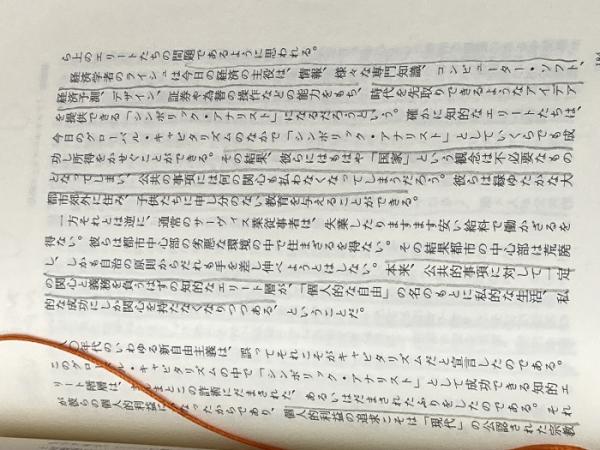 184
ら上のエリートたちの問題であるように思われる。
経済学者のライシュは今日の経済の主役は、情報、様々な専門知識、コンピューター・ソフト、
経済予測、デザイン、証券や為替の操作などの能力をもち、時代を先取りできるようなアイデア
を提供できる「シンボリック・アナリスト」になるだろうという。確かに知的なエリートたちは、
今日のグローバル・キャピタリズムのなかで「シンボリック・アナリスト」としていくらでも成
功し所得をかせぐことができる。その結果、彼らにはもはや「国家」という観念は不必要なもの
となってしまい、公共の事項には何の関心も払わないなってしまうだろう。彼らは緑ゆたかな大
都市郊外に住み、子供たちに申し分のない教育を与えることができる。
一方それとは逆に、通常のサーヴィス業従事者は、失業したりますます安い給料で働かざるを
得ない。彼らは都市中心部の劣悪な環境の中で住まざるを得ない。その結果都市の中心部は荒廃
し、しかも自治の原則からだれも手を差し伸べようとはしない。本来、公共的事項に対して一定
の関心と義務を負うはずの知的なエリート層が、「個人的な自由」の名のもとに私的な生活、私
的な成功にしか関心を持たなくなりつつある、ということだ。
〇年代のいわゆる新自由主義は、誤ってそれこそがキャピタリズムだと宣言したのである。
このグローバル・キャピタリズムの中で「シンボリック・アナリスト」として成功できる知的エ
リート階層は、まんまとこの詐術にだまされた、あるいはだまされたふりをしたのである。それ
が彼らの個人的利益になったからであり、個人的利益の追求こそは「現代」の公認された宗教